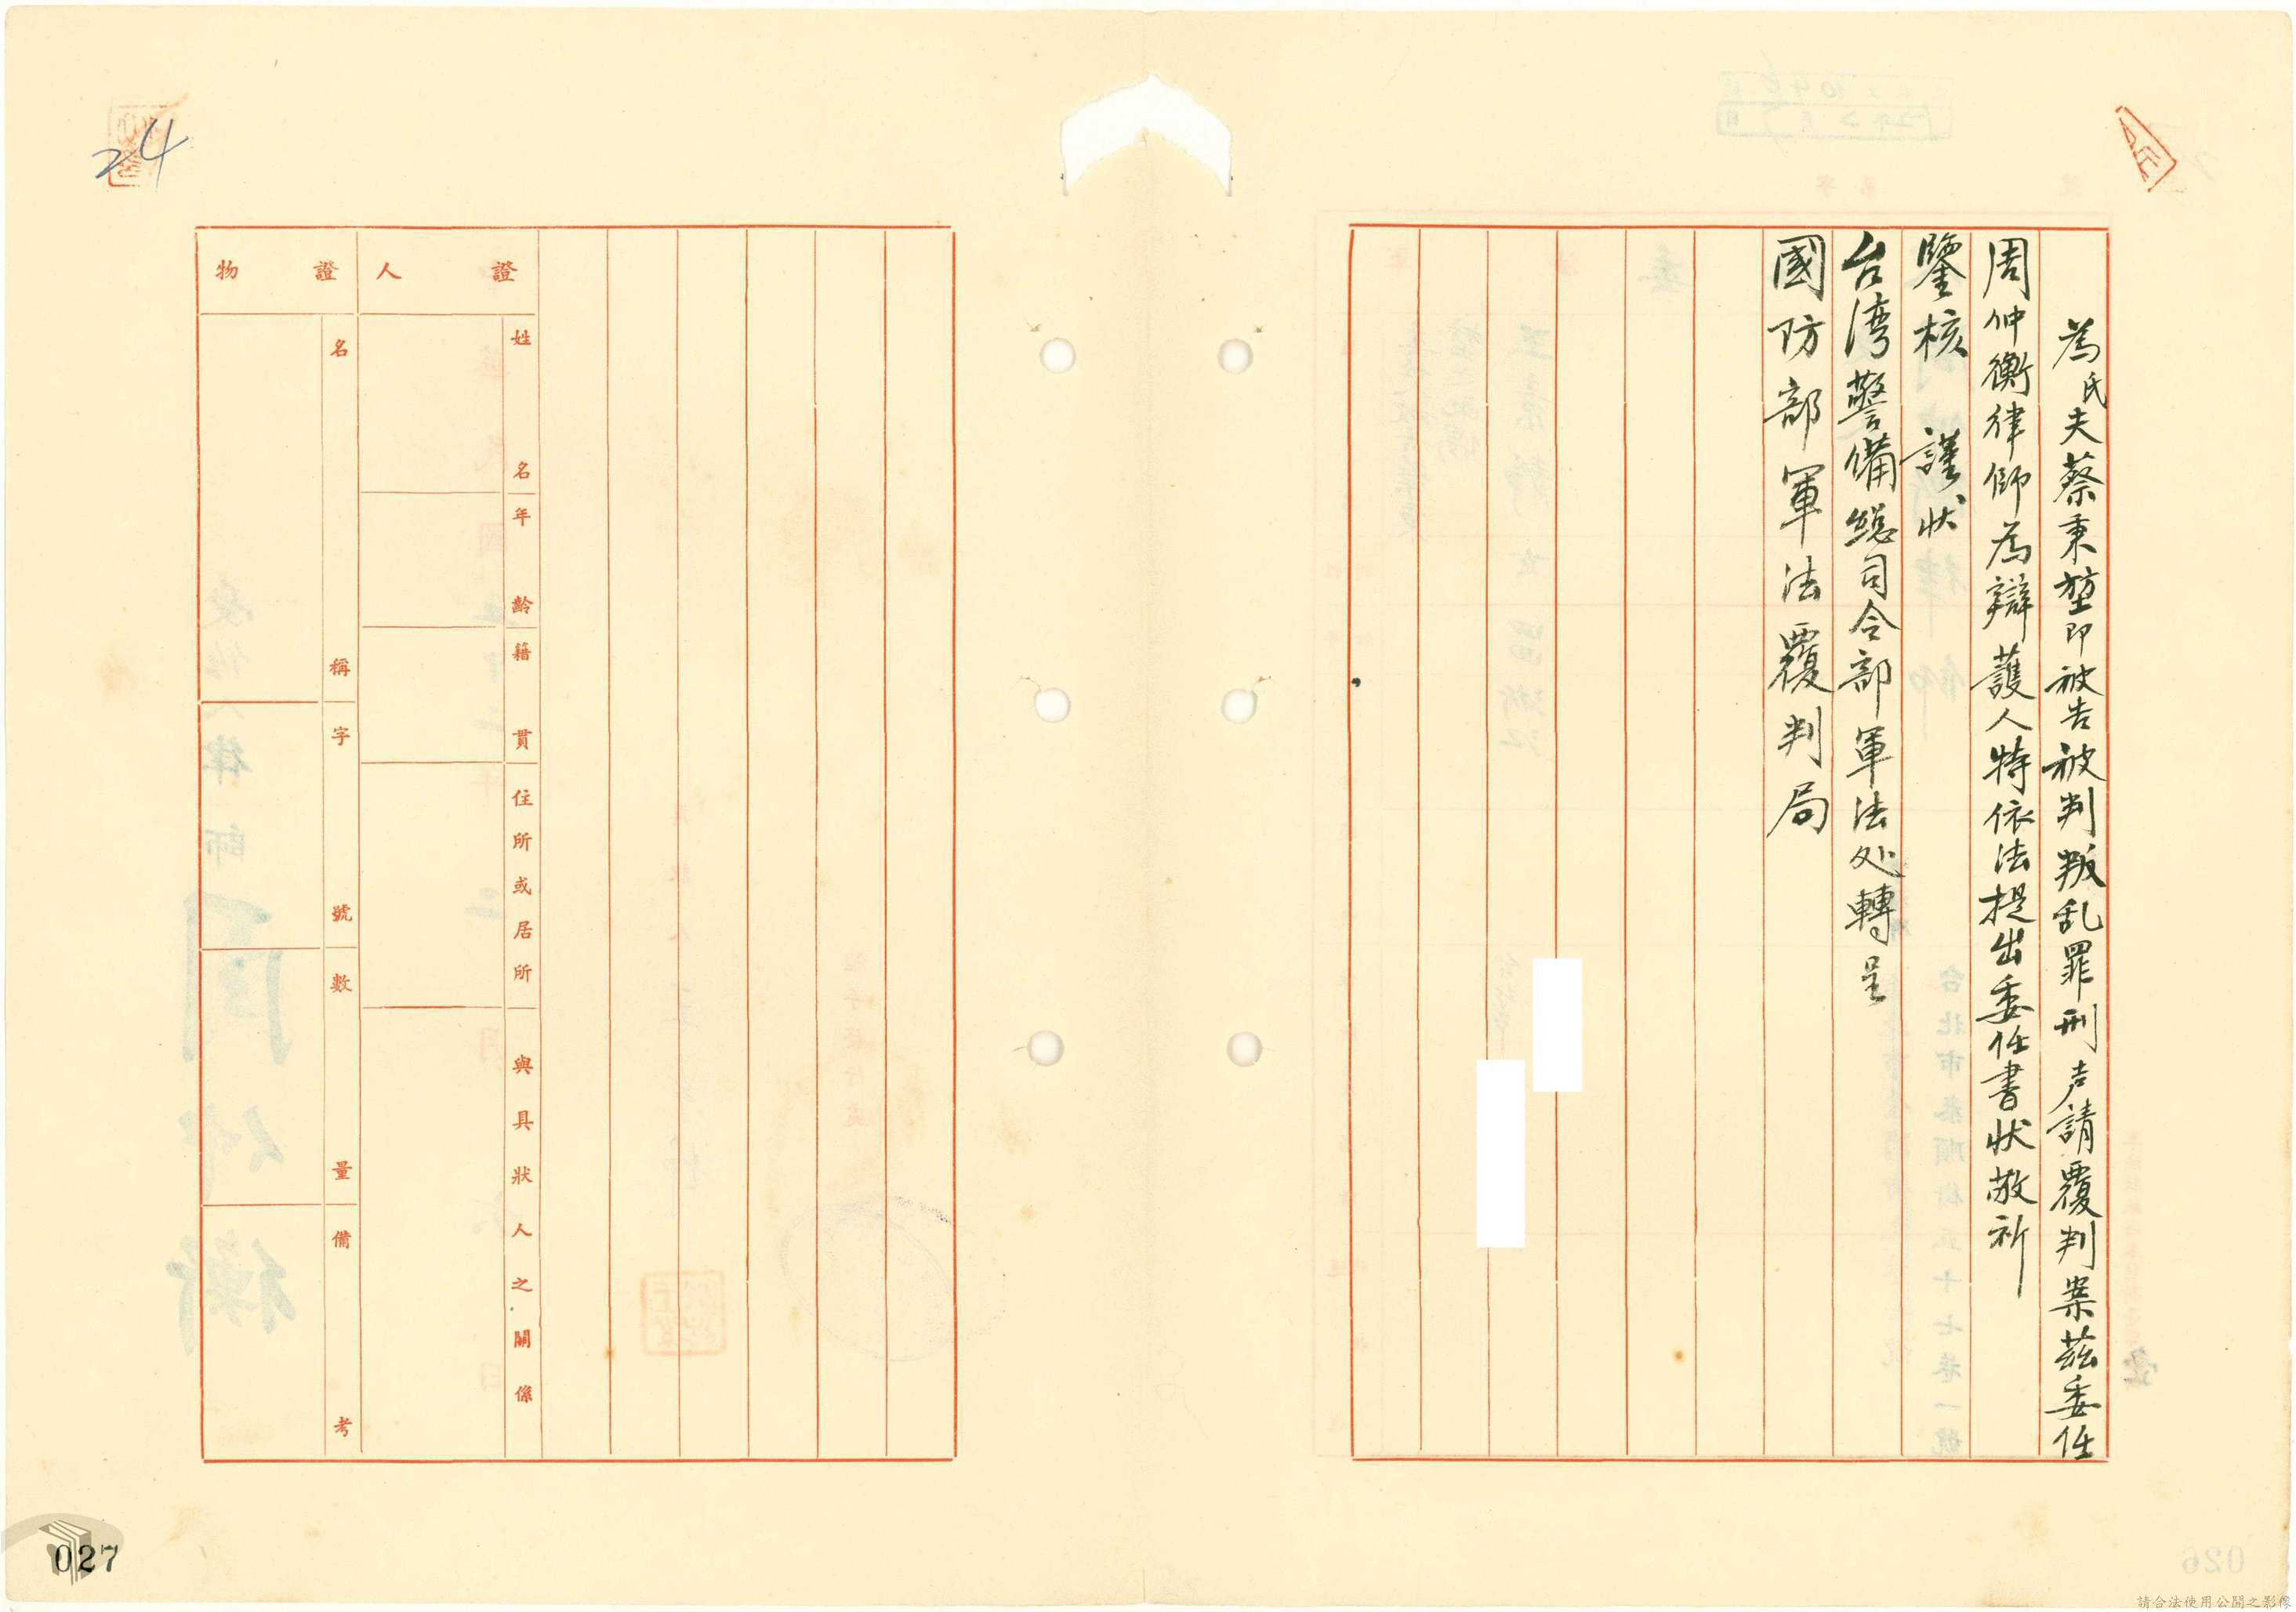 為氏夫蔡秉堃即被告被判叛乱罪刑声請覆判案茲委任
周仲衡律師為辯護人特依法提出委任書状敬祈
鑒核　謹状
台湾警備總司令部軍法処轉呈
國防部軍法覆判局
證人
姓名
年齡
籍貫
住所或居所
與具狀人之關係
證物
名稱
字號
數量
備考
24
027
請合法使用公開之影像